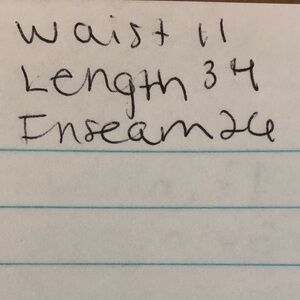 Waist 11
Length 34
Inseam 26